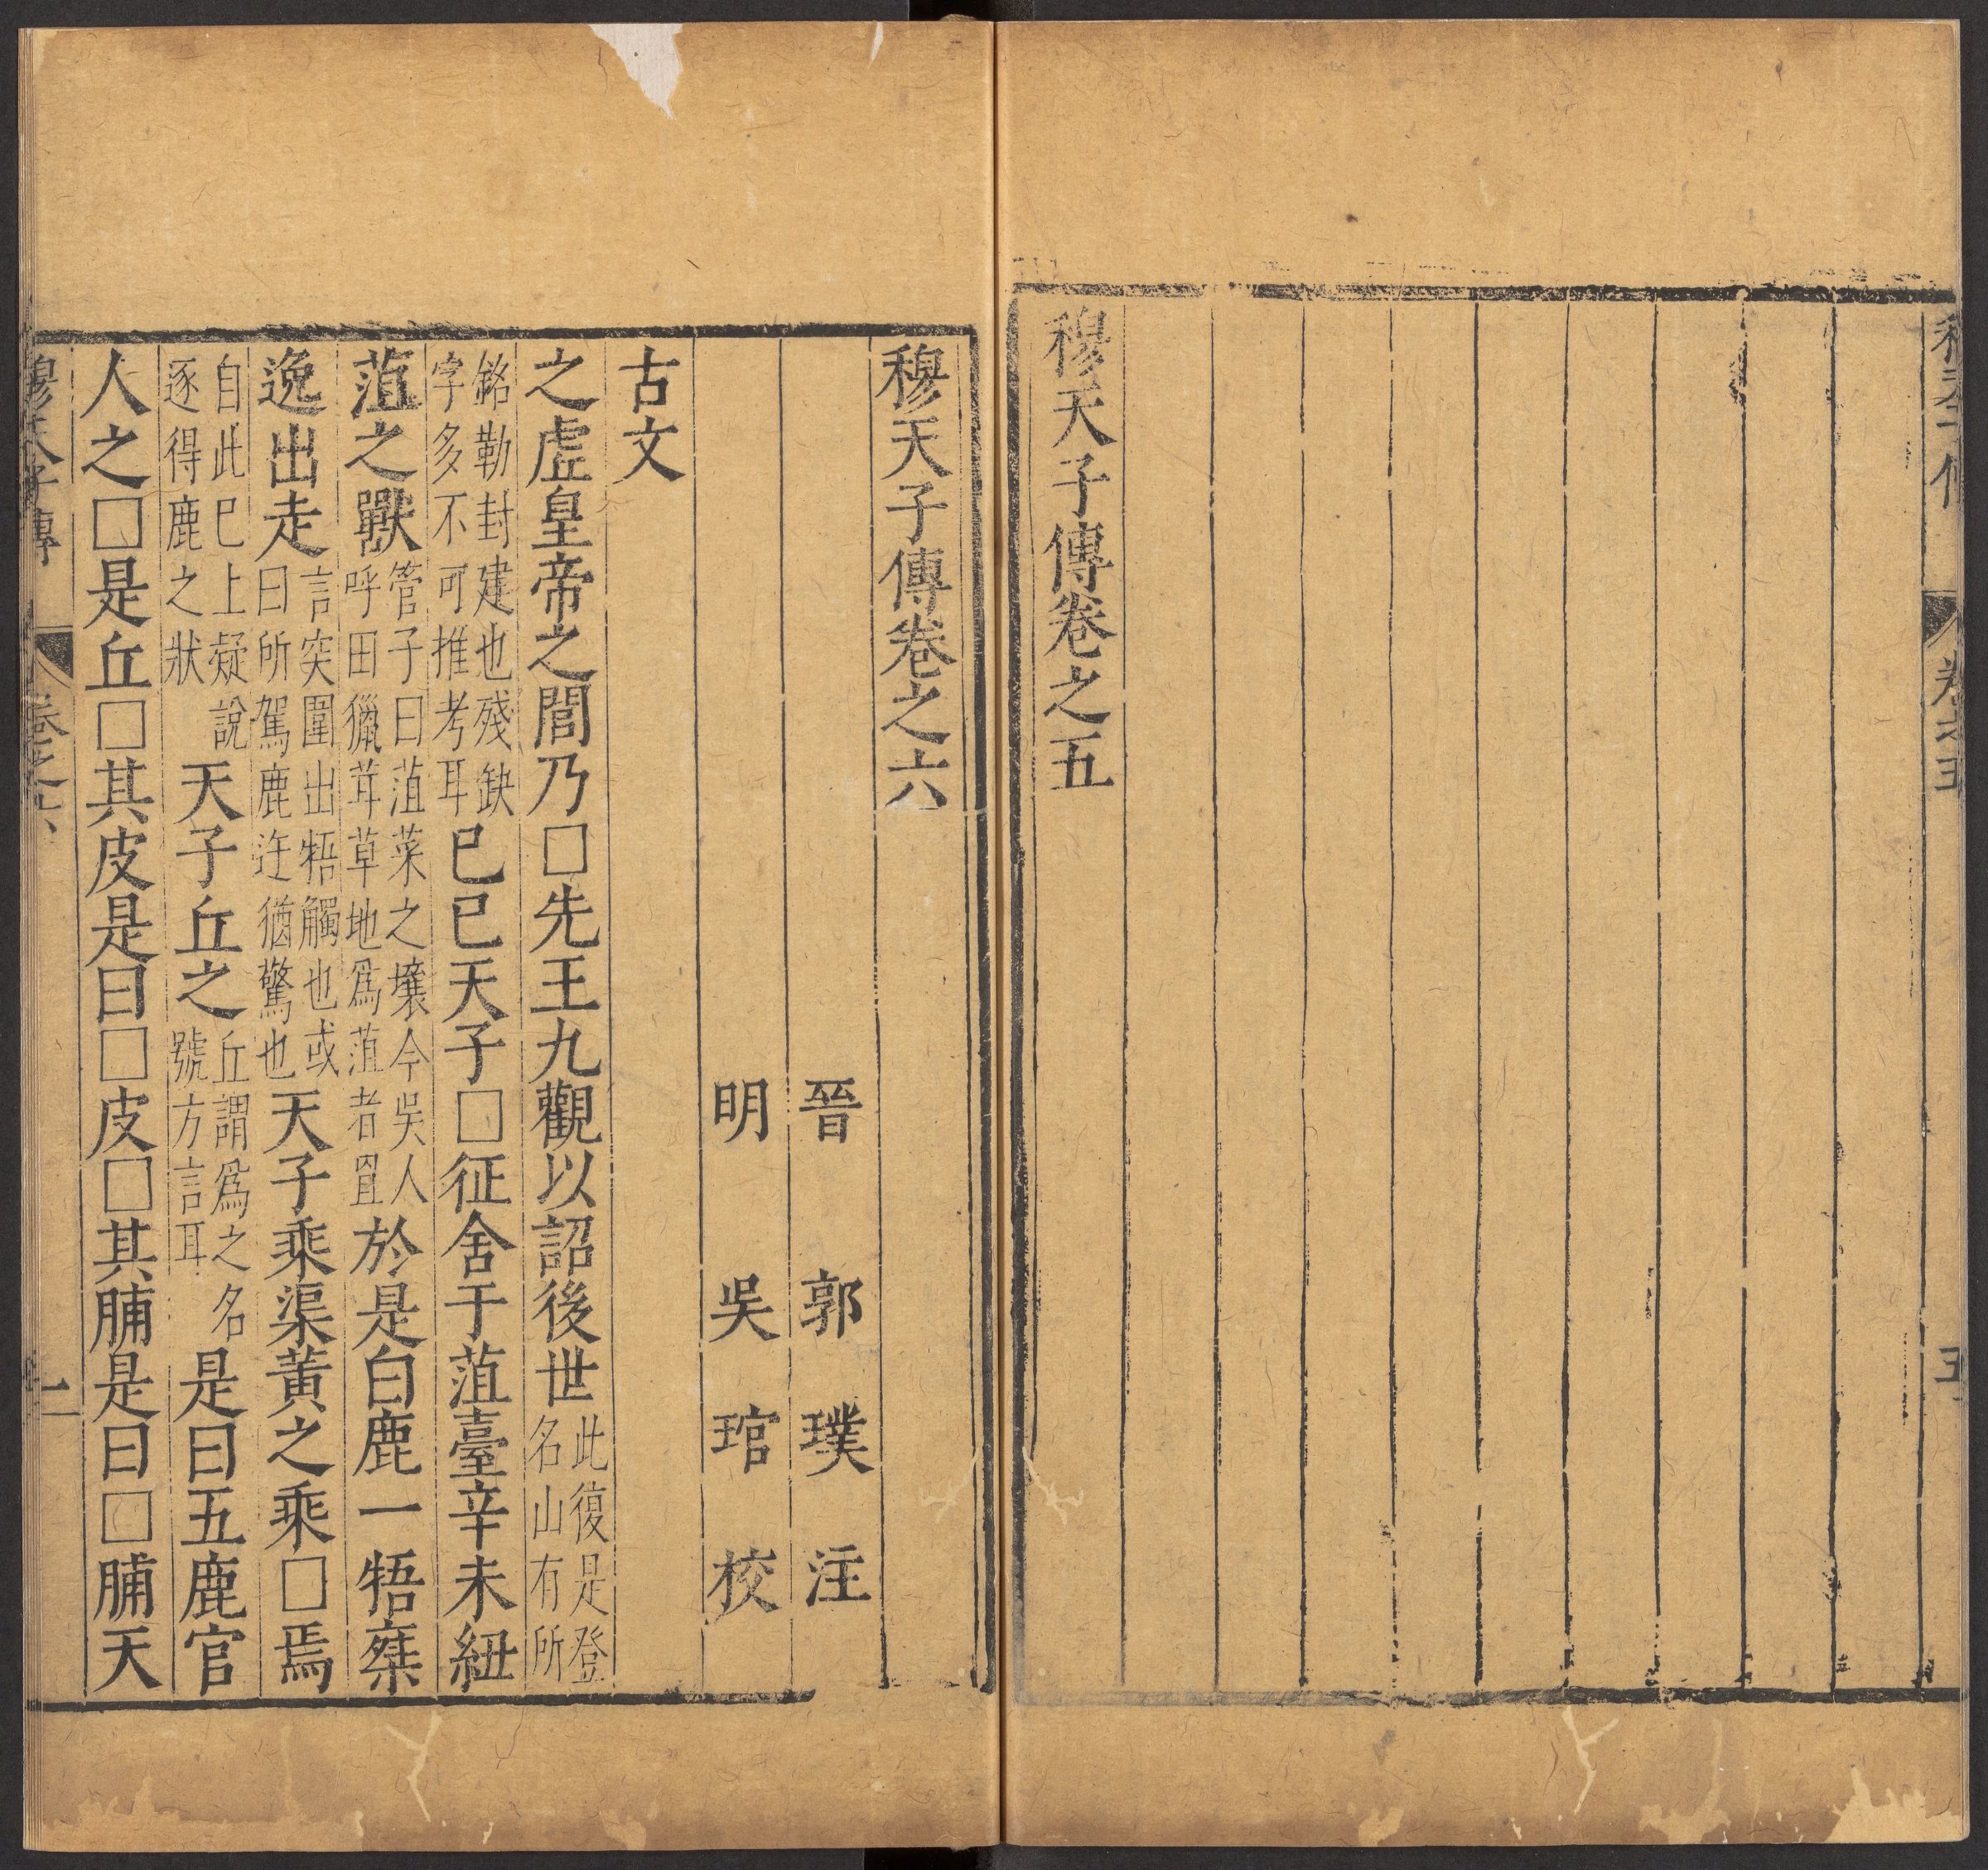 穆天子傳 卷之五 五
穆天子傳卷之五
穆天子傳卷之六
晉 郭璞 注
明 吳琯 校
古文
之虛皇帝之閭乃□先王九觀以詔後世此復是登名山有所
銘勒封建也殘缺字多不可推考耳巳巳天子□征舍于菹臺辛未紐
菹之獸管子曰菹菜之壤今吳人呼田獵茸草地爲菹者罝於是白鹿一牾椉
逸出走言突圍出牾觸也或曰所駕鹿迕猶驚也天子乘渠黃之乘□焉
自此巳上疑說逐得鹿之狀天子丘之丘謂爲之名號方言耳是曰五鹿官
人之□是丘□其皮是曰□皮□其脯是曰□脯天
穆天子傳 卷之六